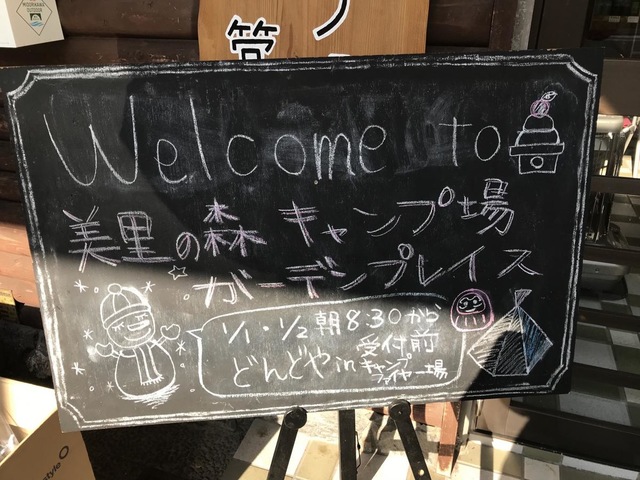 管
Welcome to
美里の森キャンプ場
ガーデンプレイス
1/1・1/2 朝8:30から
受付前
どんどや in キャンプ
ファイヤー場
style